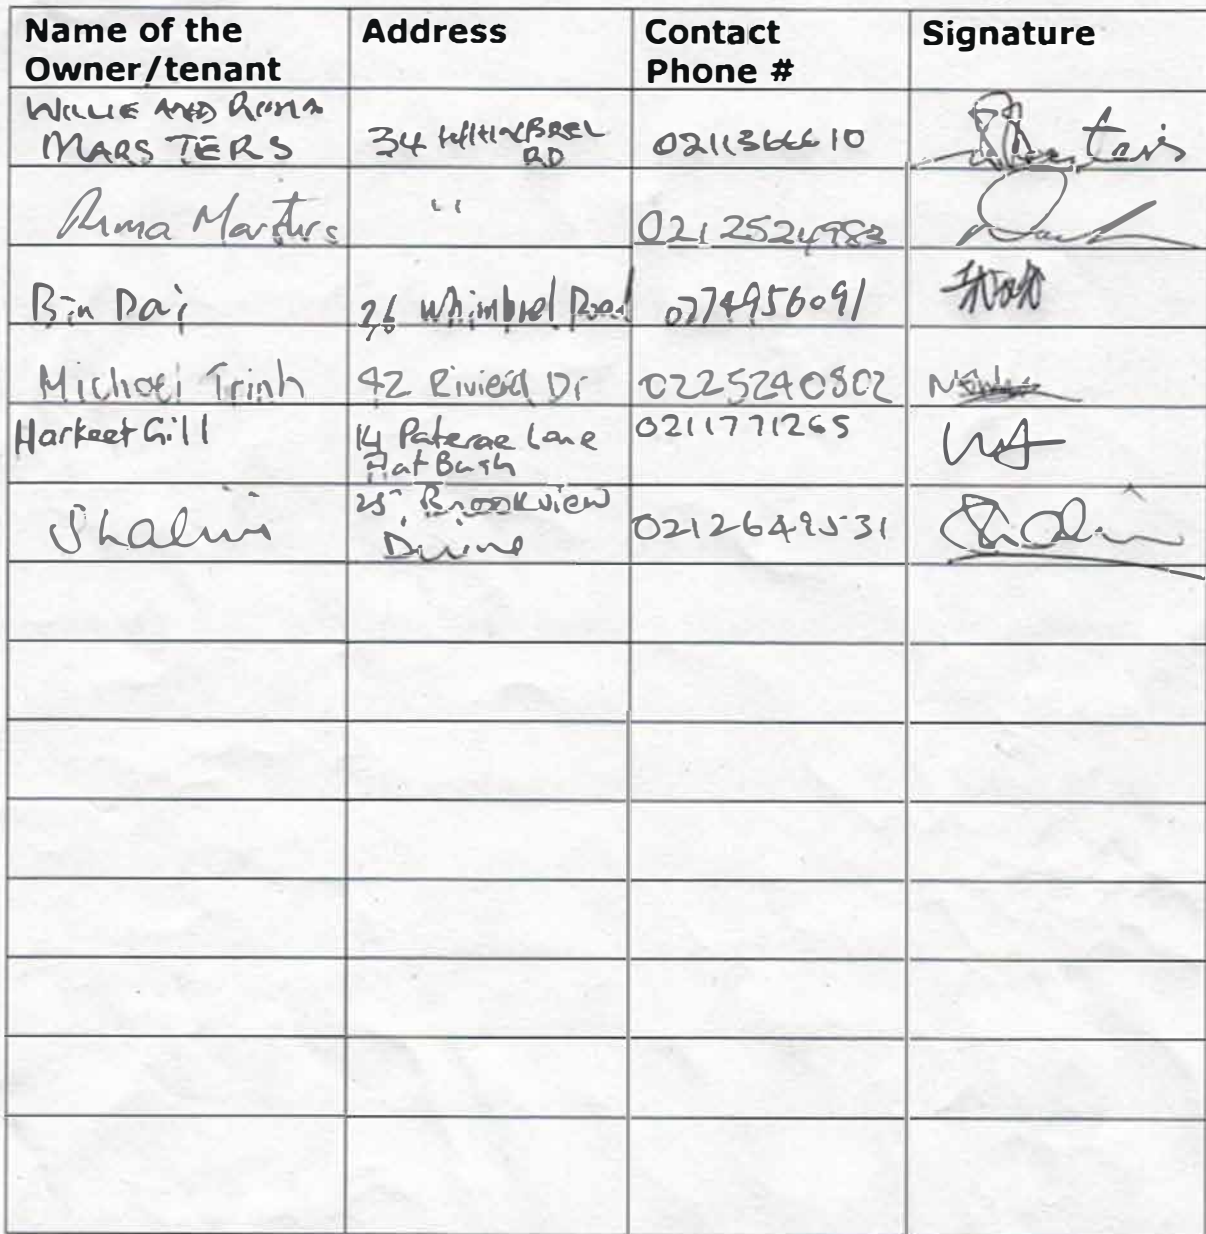 Name of the Owner/tenant
Address
Contact Phone #
Signature
WILLIE AND RUMA
MARSTERS
34 WHIMBREL
RD
Ruma Marsters
"
0212524983
Bin Dai
26 Whimbrel Road
0274956091
Michael Trinh
42 Riviera Dr
0225240802
Harkeet Gill
14 Paterae Lane
Flat Bush
0211771265
Shalini
25 Brookview
Drive
0212649531